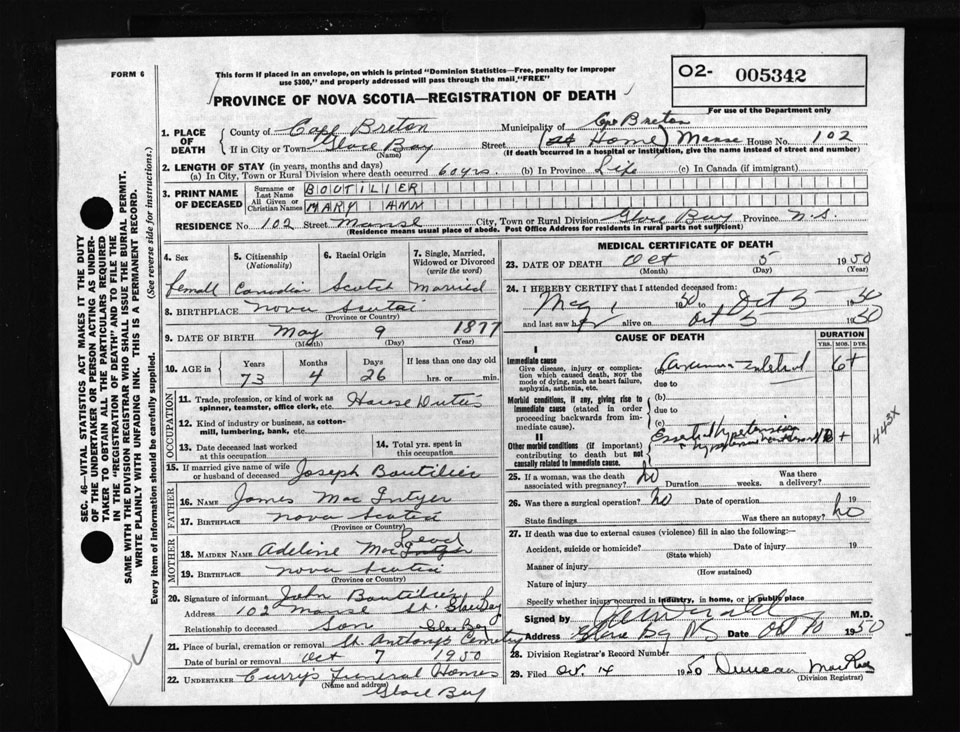 FORM 6
This form if placed in an envelope, on which is printed "Dominion Statistics—Free, penalty for improper
use $300," and properly addressed will pass through the mail, "FREE"
O2- 005342
For use of the Department only
PROVINCE OF NOVA SCOTIA—REGISTRATION OF DEATH
SEC. 46—VITAL STATISTICS ACT MAKES IT THE DUTY
OF THE UNDERTAKER OR PERSON ACTING AS UNDER-
TAKER TO OBTAIN ALL THE PARTICULARS REQUIRED
IN THE "REGISTRATION OF DEATH" AND TO FILE THE
SAME WITH THE DIVISION REGISTRAR WHO SHALL ISSUE THE BURIAL PERMIT.
WRITE PLAINLY WITH UNFADING INK. THIS IS A PERMANENT RECORD.
Every item of information should be carefully supplied. (See reverse side for instructions.)
1. PLACE OF DEATH County of Cape Breton Municipality of Cape Breton
If in City or Town Glace Bay (Name) Street (At Home) Manse House No. 102
(If death occurred in a hospital or institution, give the name instead of street and number)
2. LENGTH OF STAY (in years, months and days)
(a) In City, Town or Rural Division where death occurred 60 yrs. (b) In Province Life (c) In Canada (if immigrant)
3. PRINT NAME OF DECEASED Surname or Last Name BOUTILIER
All Given or Christian Names MARY ANN
RESIDENCE No. 102 Street Manse City, Town or Rural Division Glace Bay Province N.S.
(Residence means usual place of abode. Post Office Address for residents in rural parts not sufficient)
4. Sex 5. Citizenship (Nationality) 6. Racial Origin 7. Single, Married, Widowed or Divorced (write the word)
female Canadian Scotch Married
8. BIRTHPLACE Nova Scotai
(Province or Country)
9. DATE OF BIRTH May 9 1877
(Month) (Day) (Year)
10. AGE in Years Months Days If less than one day old
73 4 26 hrs. or min.
OCCUPATION
11. Trade, profession, or kind of work as spinner, teamster, office clerk, etc. House Duties
12. Kind of industry or business, as cotton-mill, lumbering, bank, etc.
13. Date deceased last worked at this occupation 14. Total yrs. spent in this occupation
15. If married give name of wife or husband of deceased Joseph Boutilier
FATHER
16. NAME James Mac Intyer
17. BIRTHPLACE Nova Scotia
(Province or Country)
MOTHER
18. MAIDEN NAME Adeline Mac Leod
19. BIRTHPLACE Nova Scotia
(Province or Country)
20. Signature of informant John Boutilier
Address 102 Manse St. Glace Bay
Relationship to deceased Son Glace Bay
21. Place of burial, cremation or removal St. Anthonys Cemetry
Date of burial or removal Oct 7 1950
22. UNDERTAKER Curry's Funeral Homes
(Name and address) Glace Bay
MEDICAL CERTIFICATE OF DEATH
23. DATE OF DEATH Oct 5 1950
(Month) (Day) (Year)
24. I HEREBY CERTIFY that I attended deceased from:
May 1 1950 to Oct 5 1950
and last saw h alive on Oct 5 1950
CAUSE OF DEATH DURATION
YRS. MOS. DYS.
I
Immediate cause
Give disease, injury or complication which caused death, not the mode of dying, such as heart failure, asphyxia, asthenia, etc.
6+
due to
(b)
Morbid conditions, if any, giving rise to immediate cause (stated in order proceeding backwards from immediate cause).
due to
(c)
II
Other morbid conditions (if important) contributing to death but not causally related to immediate cause.
Essential hypertension
443X
25. If a woman, was the death associated with pregnancy? No Duration weeks. Was there a delivery?
26. Was there a surgical operation? No Date of operation 19
State findings Was there an autopsy? No
27. If death was due to external causes (violence) fill in also the following:—
Accident, suicide or homicide? Date of injury 19
(State which)
Manner of injury
(How sustained)
Nature of injury
Specify whether injury occurred in industry, in home, or in public place
Signed by M.D.
Address Glace Bay NS Date Oct 10 1950
28. Division Registrar's Record Number
29. Filed Oct. 14 1950 Duncan
(Division Registrar)